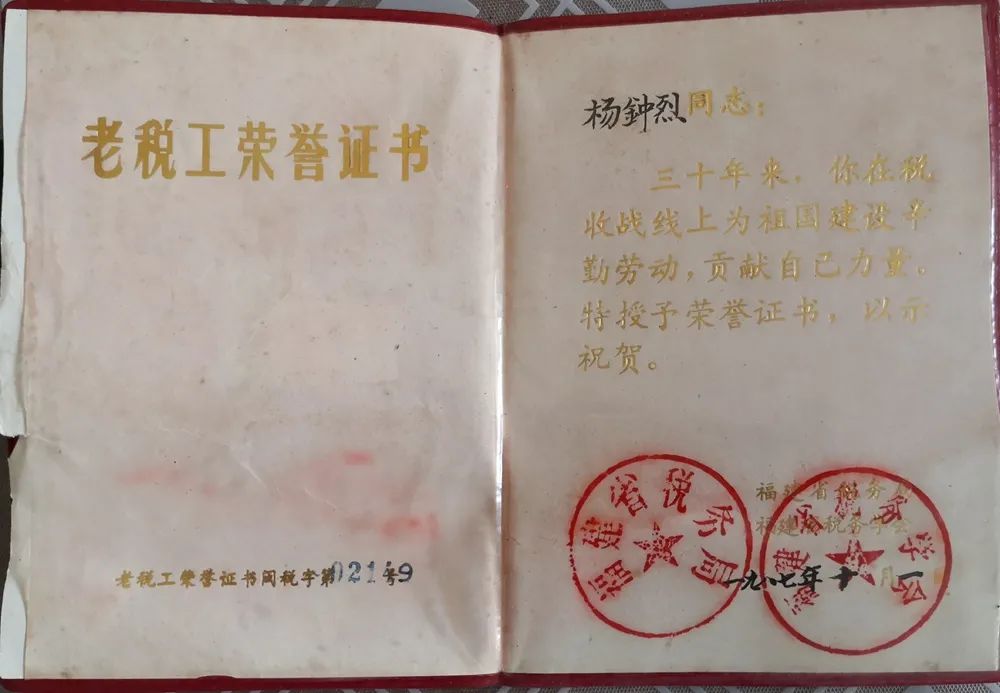 老税工荣誉证书
老税工荣誉证书闽税字第02149号
杨鈡烈同志：
三十年来，你在税
收战线上为祖国建设辛
勤劳动，贡献自己力量。
特授予荣誉证书，以示
祝贺。
福建省税务局
福建省税务学会
一九八七年十月一
福建省税务局
福建省税务学会